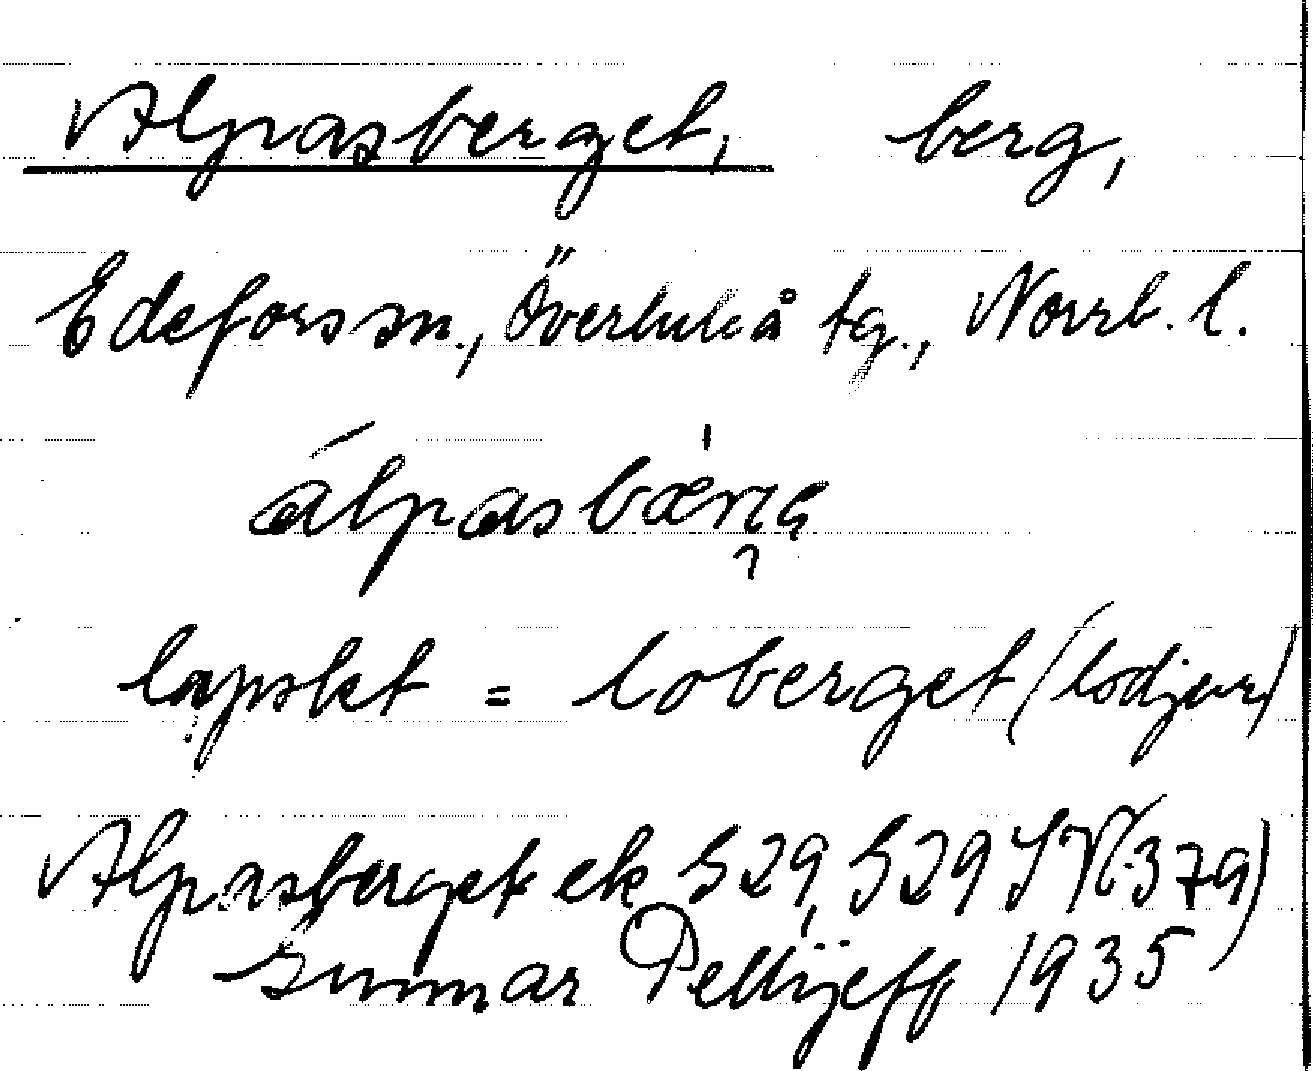 Alpasberget, berg,
Edefors sn., Överluleå tg., Norrb. l.
álpasbærje
lapskt = loberget (lodjur)
Alpasberget ek S 29, S 29 SV (379)
Gunnar Pellijeff 1935